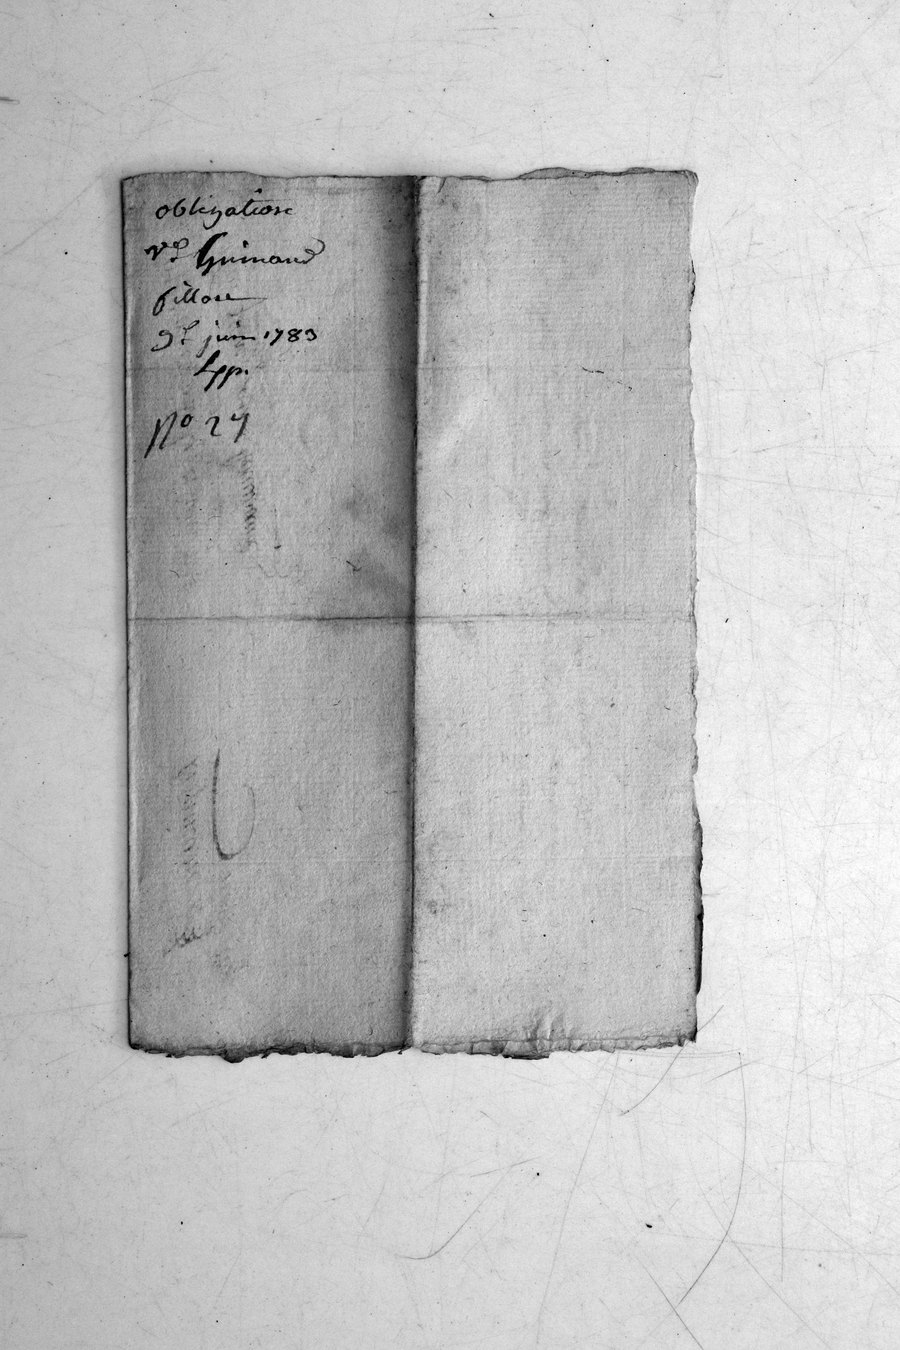 obligation
vd Guimand
fillon
9e juin 1783
Lpp.
No 27